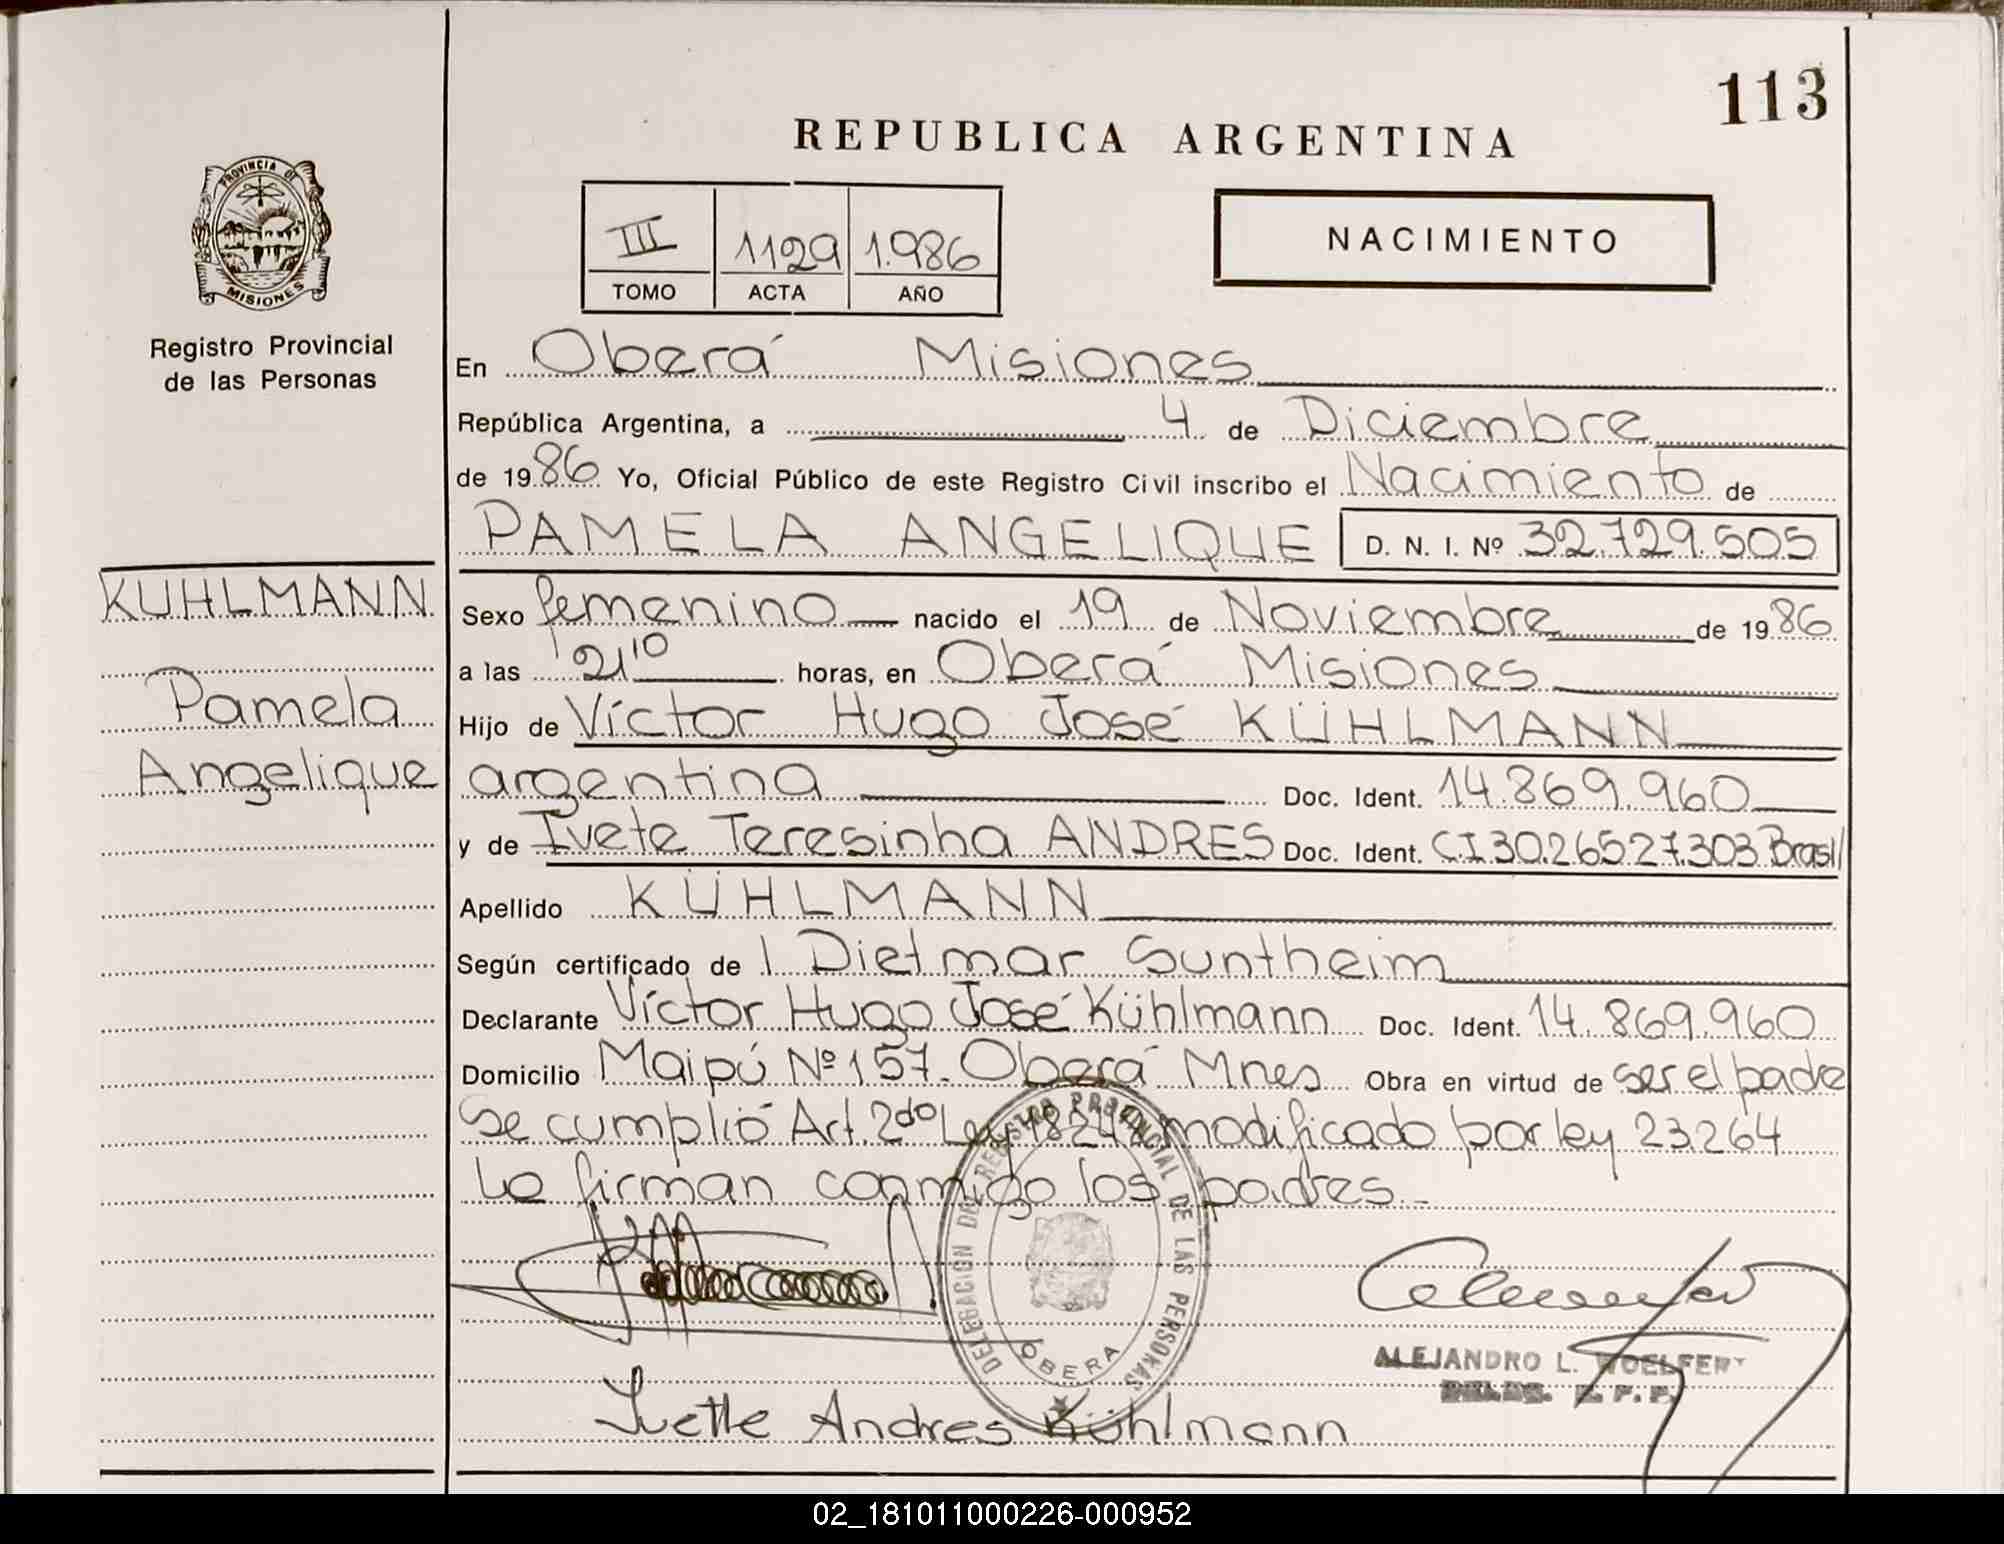 113
REPUBLICA ARGENTINA
PROVINCIA DE
MISIONES
Registro Provincial
de las Personas
III 1129 1.986
TOMO ACTA AÑO
NACIMIENTO
En Oberá Misiones
República Argentina, a 4 de Diciembre
de 1986 Yo, Oficial Público de este Registro Civil inscribo el Nacimiento de
PAMELA ANGELIQUE D. N. I. Nº 32.729.505
KUHLMANN
Pamela
Angelique
Sexo femenino nacido el 19 de Noviembre de 1986
a las 21'10 horas, en Oberá Misiones
Hijo de Víctor Hugo José KÜHLMANN
argentina Doc. Ident. 14.869.960
y de Ivete Teresinha ANDRES Doc. Ident. C.I.30.26527.303 Brasil
Apellido KÜHLMANN
Según certificado de Dietmar Suntheim
Declarante Víctor Hugo José Kühlmann Doc. Ident. 14.869.960
Domicilio Maipú Nº 157. Oberá Mnes Obra en virtud de ser el padre
se cumplió Art. 2do Ley 18248 modificado por ley 23.264
Lo firman conmigo los padres.
DELEGACION DEL REGISTRO PROVINCIAL DE LAS PERSONAS
OBERA
ALEJANDRO L. WOELFERT
R. P. P.
Ivette Andres Kühlmann
02_181011000226-000952